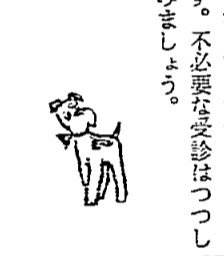 す。不必要な受診はつつし
けましょう。